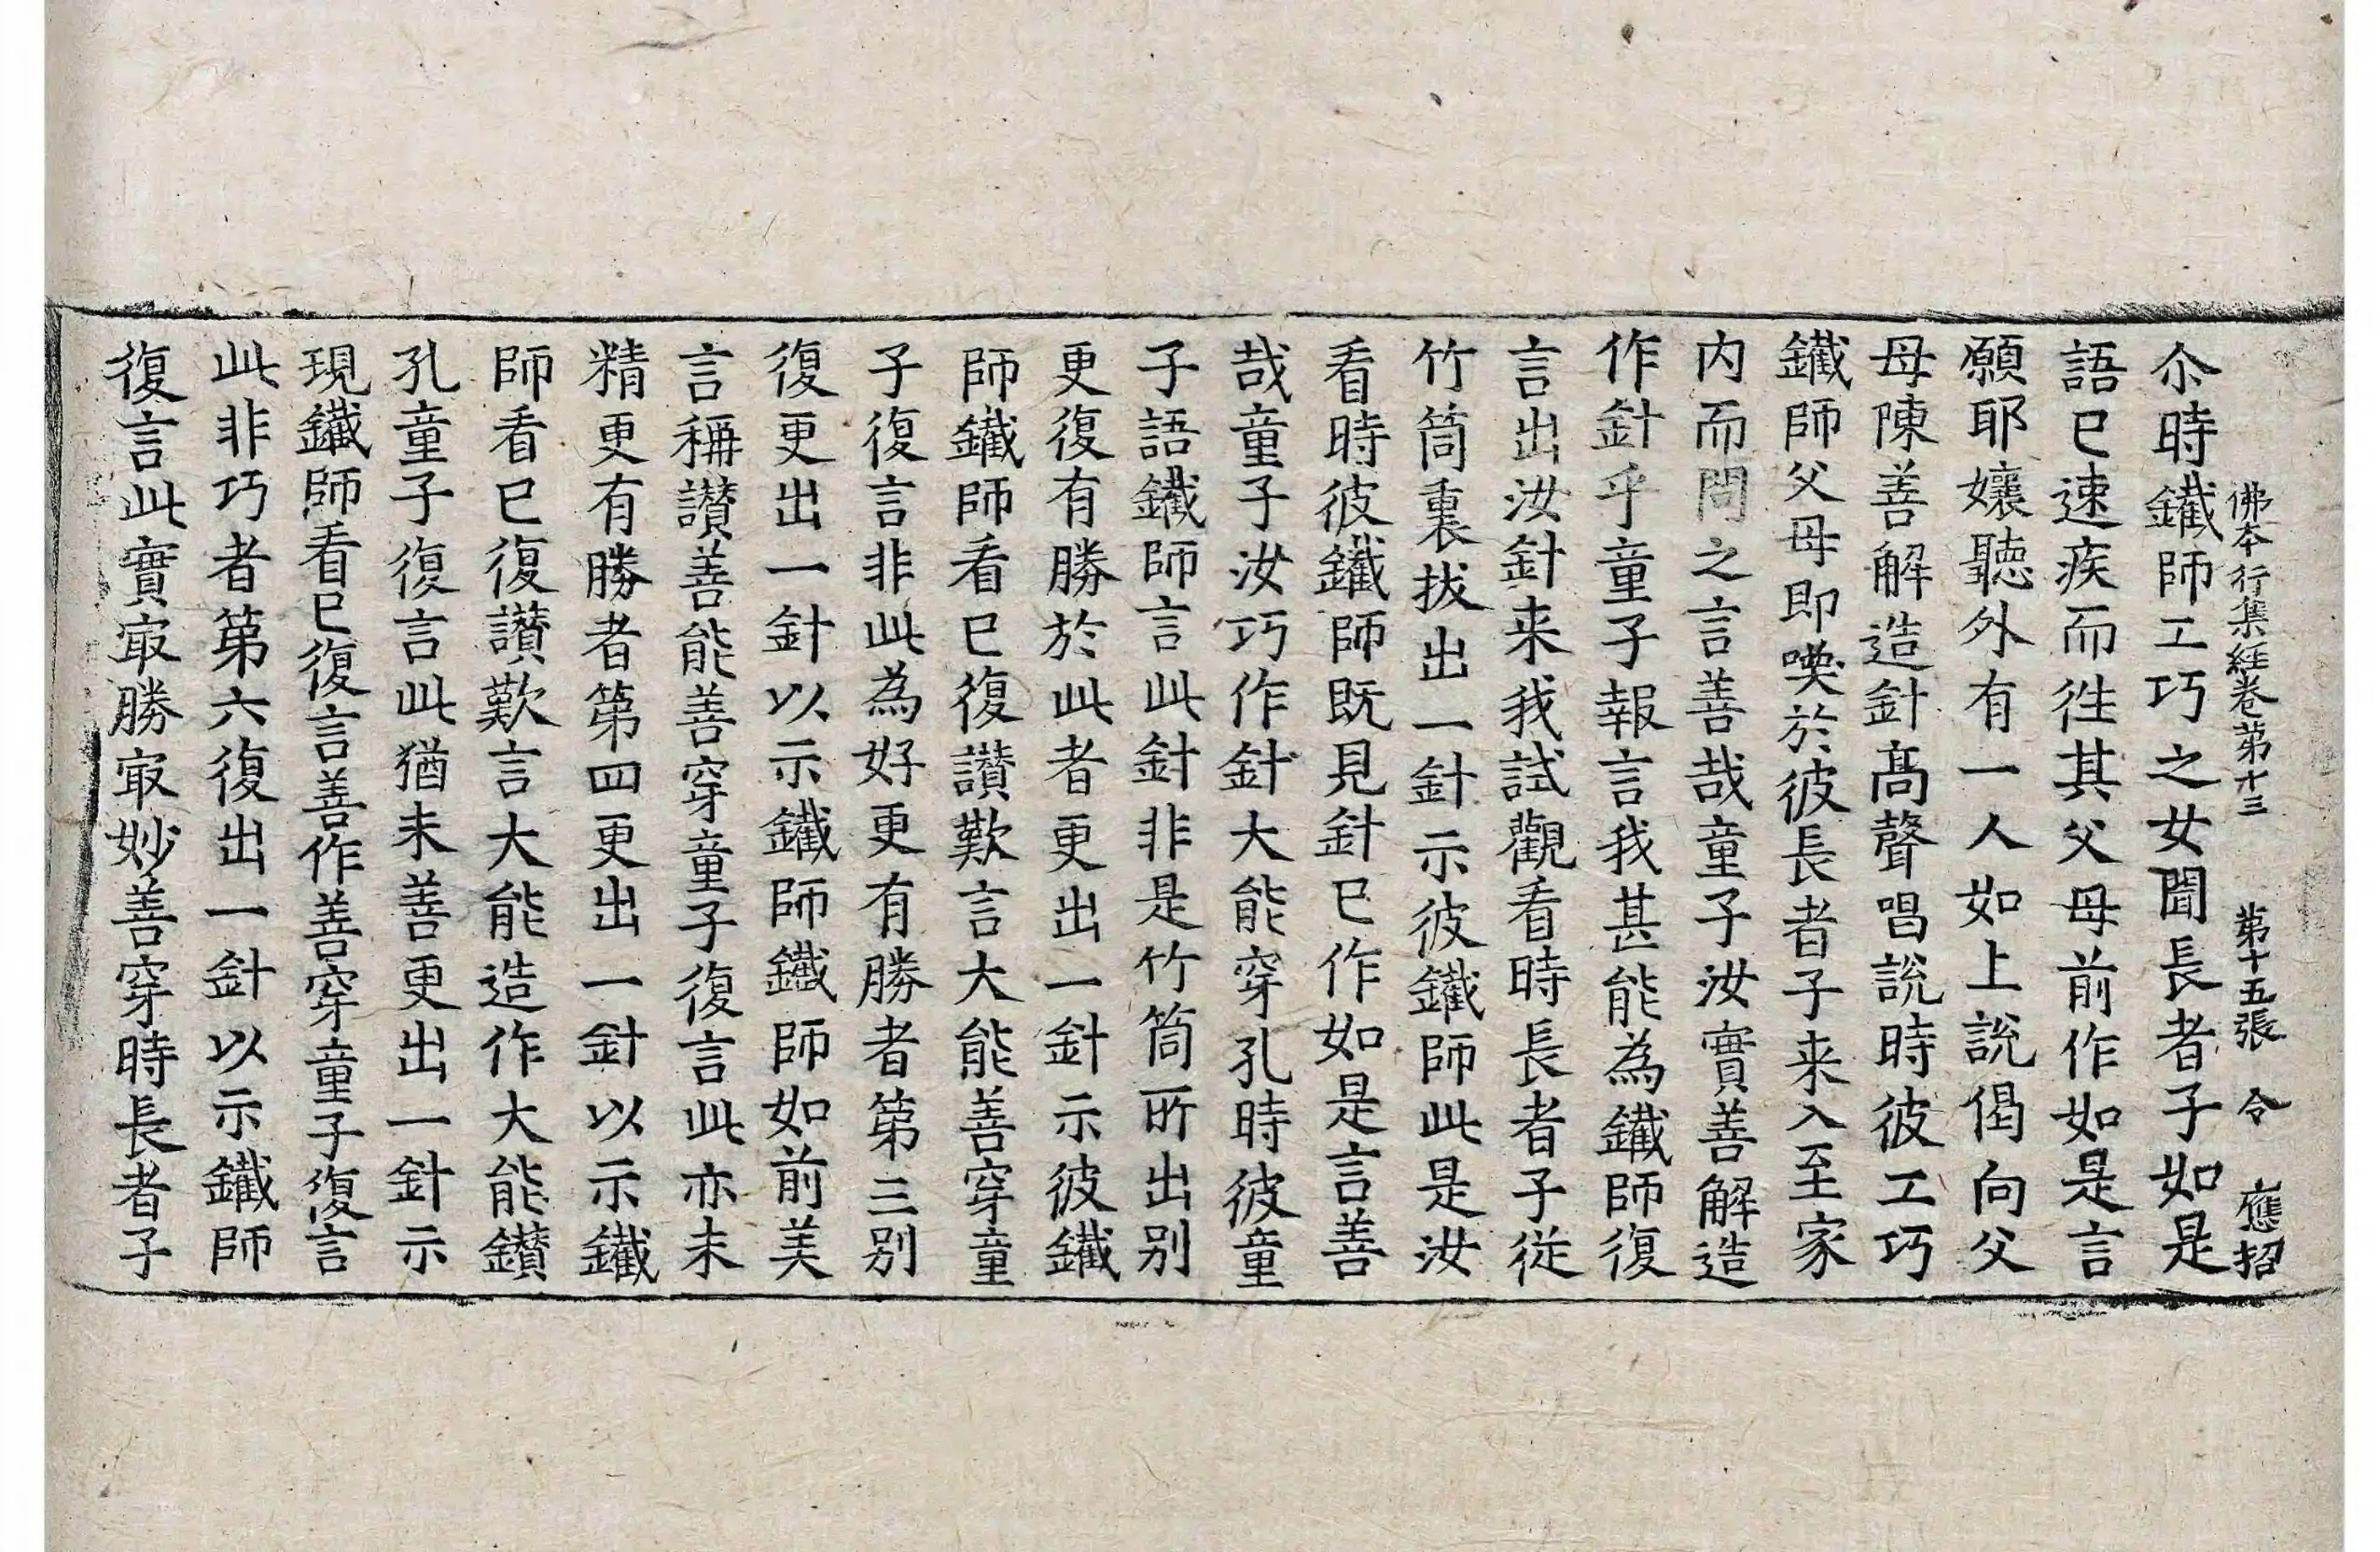 佛本行集經卷第十三 第十五張 令 應招
尒時鐵師工巧之女聞長者子如是
語已速疾而往其父母前作如是言
願耶孃聽外有一人如上說偈向父
母陳善解造針高聲唱說時彼工巧
鐵師父母即喚於彼長者子来入至家
內而問之言善哉童子汝實善解造
作針乎童子報言我甚能為鐵師復
言出汝針来我試觀看時長者子從
竹筒裏拔出一針示彼鐵師此是汝
看時彼鐵師既見針已作如是言善
哉童子汝巧作針大能穿孔時彼童
子語鐵師言此針非是竹筒所出别
更復有勝於此者更出一針示彼鐵
師鐵師看已復讃歎言大能善穿童
子復言非此為好更有勝者第三别
復更出一針以示鐵師鐵師如前美
言稱讃善能善穿童子復言此亦未
精更有勝者第四更出一針以示鐵
師看已復讃歎言大能造作大能鑚
孔童子復言此猶未善更出一針示
現鐵師看已復言善作善穿童子復言
此非巧者第六復出一針以示鐵師
復言此實㝡勝㝡妙善穿時長者子